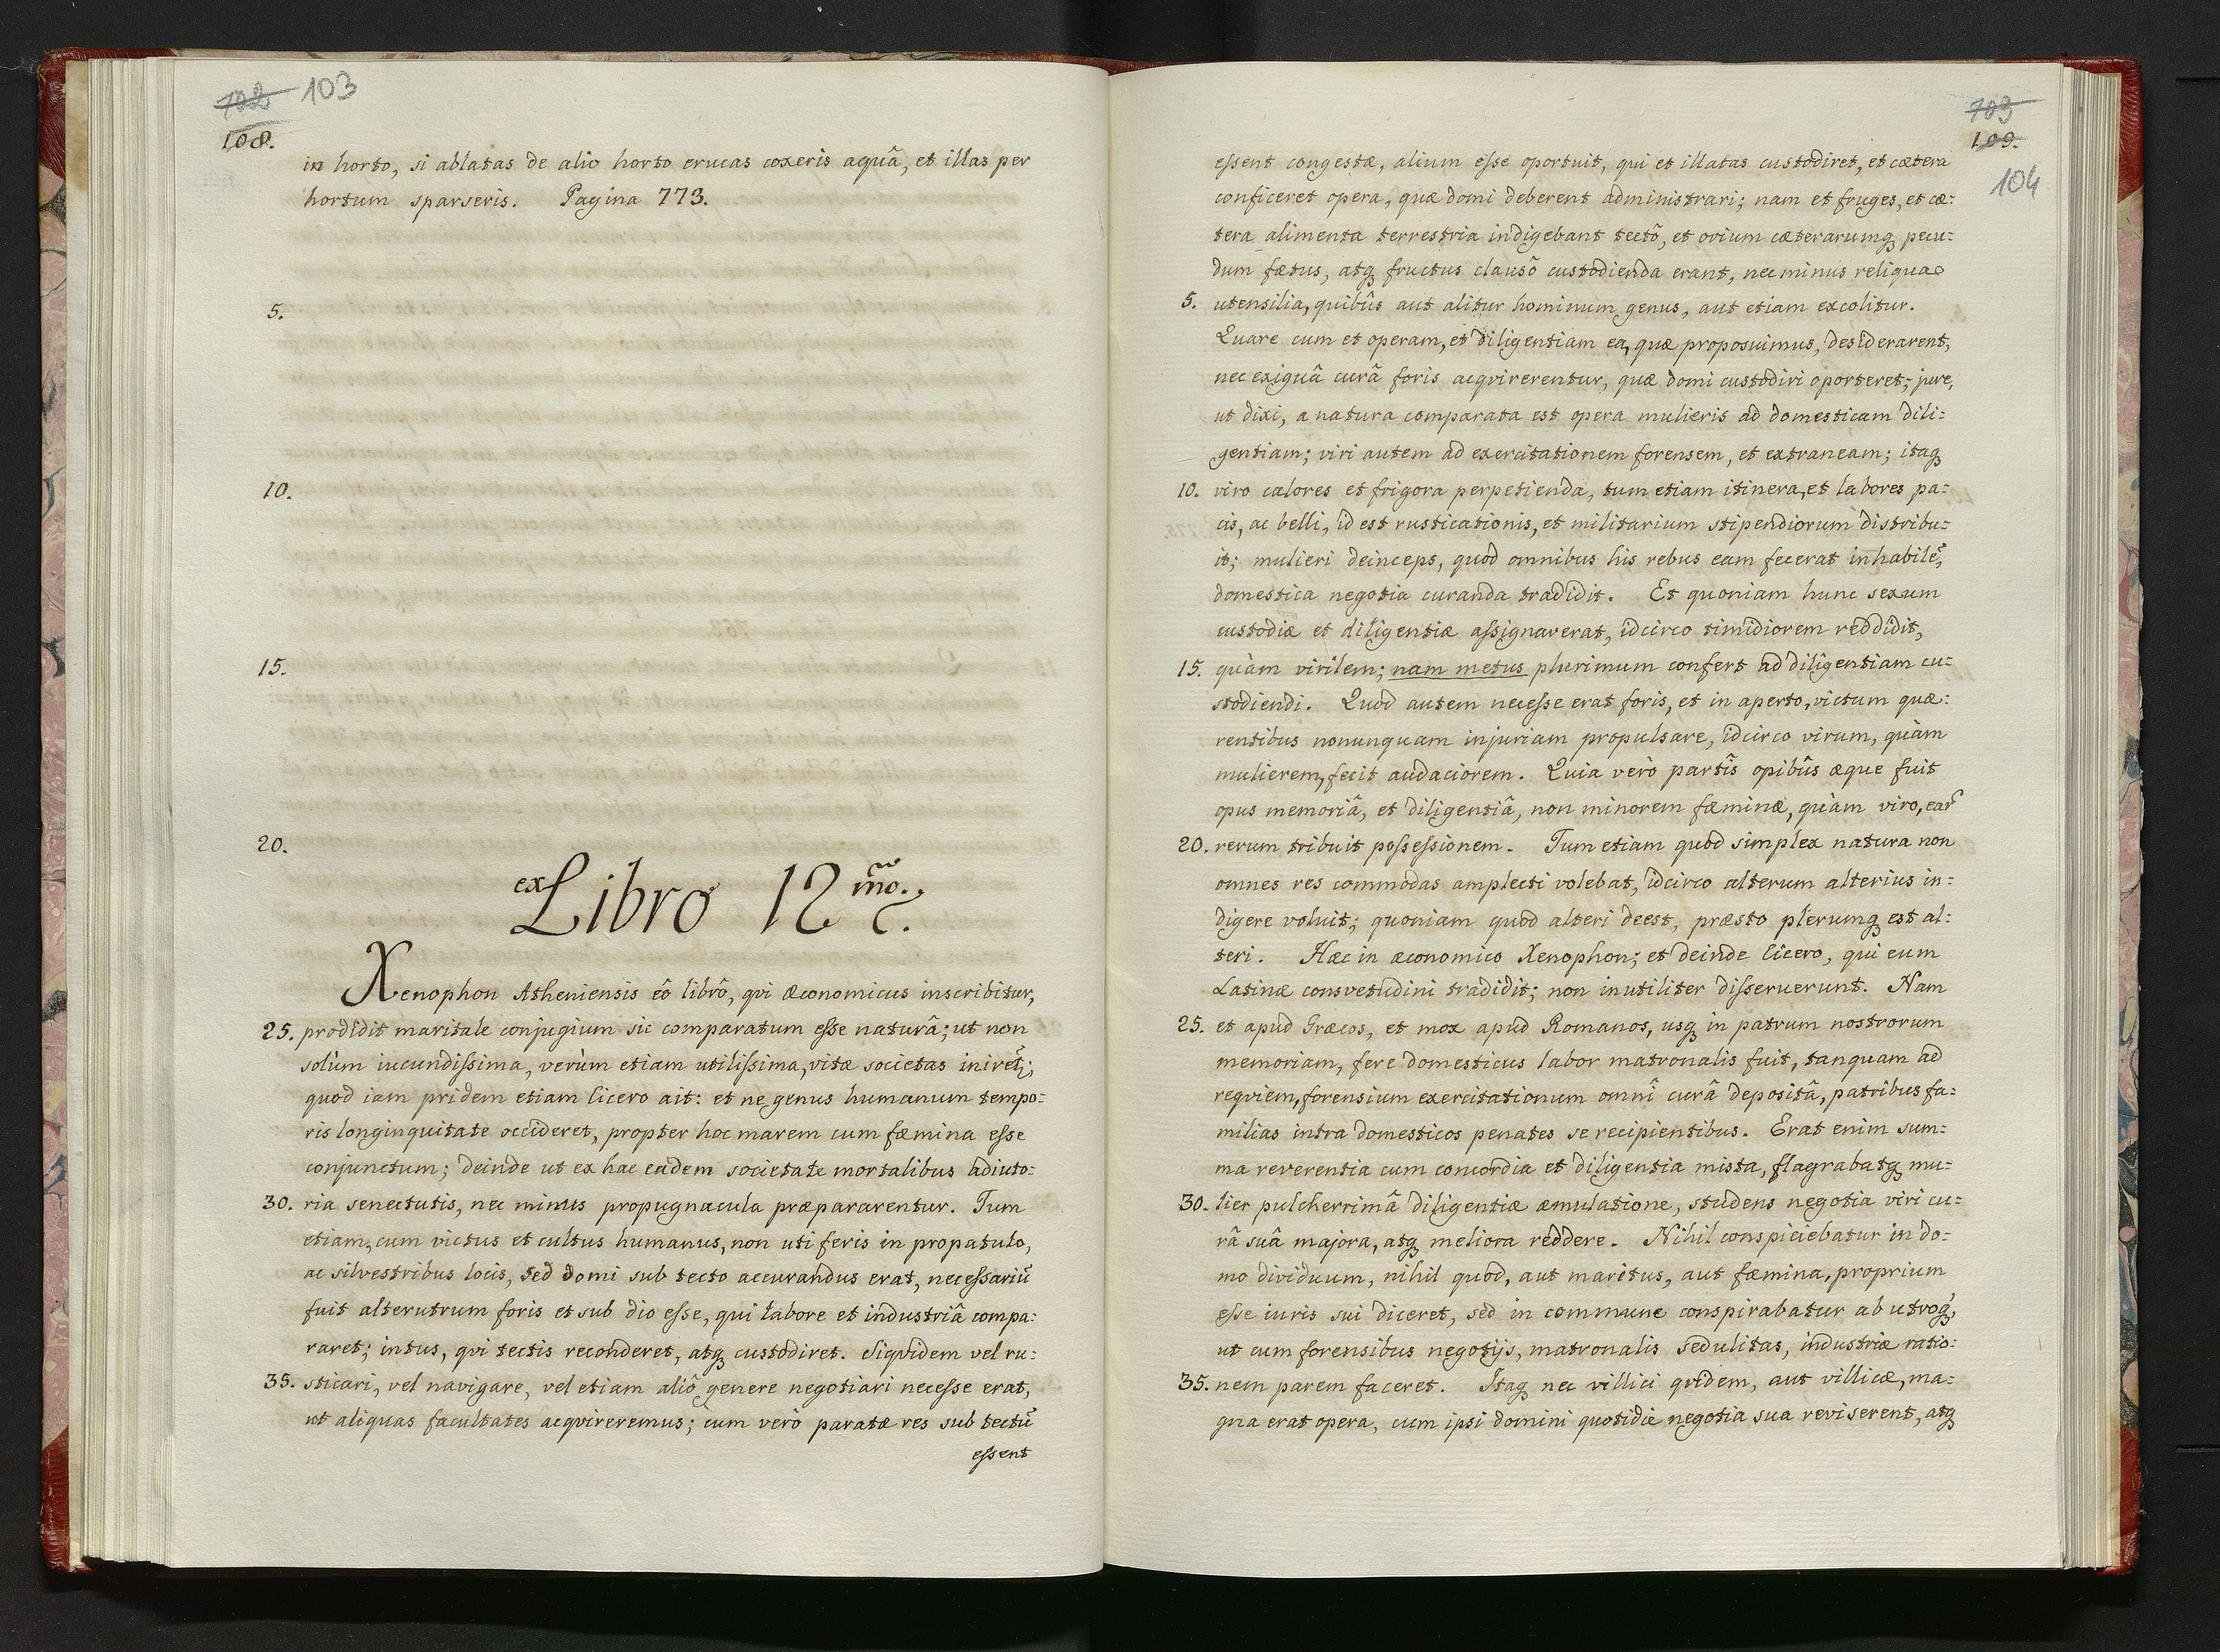 702 103
108.
in horto, si ablatas de alio horto erucas coxeris aquâ, et illas per
hortum sparseris. Pagina 773.
5.
10.
15.
20.
ex Libro 12mo.
Xenophon Atheniensis eô librô, qvi œconomicus inscribitur,
25. prodidit maritale conjugium sic comparatum esse naturâ; ut non
solùm iucundissima, verùm etiam utilissima, vitæ societas iniret;
quod iam pridem etiam Cicero ait: et ne genus humanum tempo:
ris longinquitate occideret, propter hoc marem cum fœmina esse
conjunctum; deinde ut ex hac eadem societate mortalibus adiuto:
30. ria senectutis, nec minus propugnacula præpararentur. Tum
etiam, cum victus et cultus humanus, non uti feris in propatulo,
ac silvestribus locis, sed domi sub tecto accurandus erat, necessariũ
fuit alterutrum foris et sub dio esse, qui labore et industriâ compa:
raret; intus, qvi tectis reconderet, atq; custodiret. Siqvidem vel ru:
35. sticari, vel navigare, vel etiam aliô genere negotiari necesse erat,
ut aliquas facultates acqvireremus; cum verò paratæ res sub tectũ
essent
703
109.
104
essent congestæ, alium esse oportuit, qui et illatas custodiret, et cætera
conficeret opera, quæ domi deberent administrari; nam et fruges, et cæ:
tera alimenta terrestria indigebant tectô, et ovium cæterarumq; pecu:
dum fætus, atq; fructus clausô custodienda erant, nec minus reliqua
5. utensilia, quibûs aut alitur hominum genus, aut etiam excolitur.
Quare cum et operam, et diligentiam ea, quæ proposuimus, desiderarent,
nec exiguâ curâ foris acqvirerentur, quæ domi custodiri oporteret; jure,
ut dixi, a natura comparata est opera mulieris ad domesticam dili:
gentiam; viri autem ad exercitationem forensem, et extraneam; itaq;
10. viro calores et frigora perpetienda, tum etiam itinera, et labores pa:
cis, ac belli, id est rusticationis, et militarium stipendiorum distribu:
it; mulieri deinceps, quod omnibus his rebus eam fecerat inhabilẽ,
domestica negotia curanda tradidit. Et quoniam hunc sexum
custodiæ et diligentiæ assignaverat, idcirco timidiorem reddidit,
15. quàm virilem; nam metus plurimum confert ad diligentiam cu:
stodiendi. Quod autem necesse erat foris, et in aperto, victum quæ:
rentibus nonunquam injuriam propulsare, idcirco virum, quàm
mulierem, fecit audaciorem. Quia verò partîs opibûs æque fuit
opus memoriâ, et diligentiâ, non minorem fœminæ, quàm viro, ear̃
20. rerum tribuit possessionem. Tum etiam quod simplex natura non
omnes res commodas amplecti volebat, idcirco alterum alterius in:
digere voluit; quoniam quod alteri deest, præsto plerumq; est al:
teri. Hæc in œconomico Xenophon; et deinde Cicero, qui eum
Latinæ consvetudini tradidit; non inutiliter disseruerunt. Nam
25. et apud Græcos, et mox apud Romanos, usq; in patrum nostrorum
memoriam, fere domesticus labor matronalis fuit, tanquam ad
reqviem, forensium exercitationum omnî curâ depositâ, patribus fa:
milias intra domesticos penates se recipientibus. Erat enim sum:
ma reverentia cum concordia et diligentia mista, flagrabatq; mu:
30. lier pulcherrimâ diligentiæ æmulatione, studens negotia viri cu:
râ suâ majora, atq; meliora reddere. Nihil conspiciebatur in do:
mo dividuum, nihil quod, aut maritus, aut fœmina, proprium
esse iuris sui diceret, sed in commune conspirabatur ab utroq;,
ut cum forensibus negotijs, matronalis sedulitas, industriæ ratio:
35. nem parem faceret. Itaq; nec villici qvidem, aut villicæ, ma:
gna erat opera, cum ipsi domini quotidie negotia sua reviserent, atq;